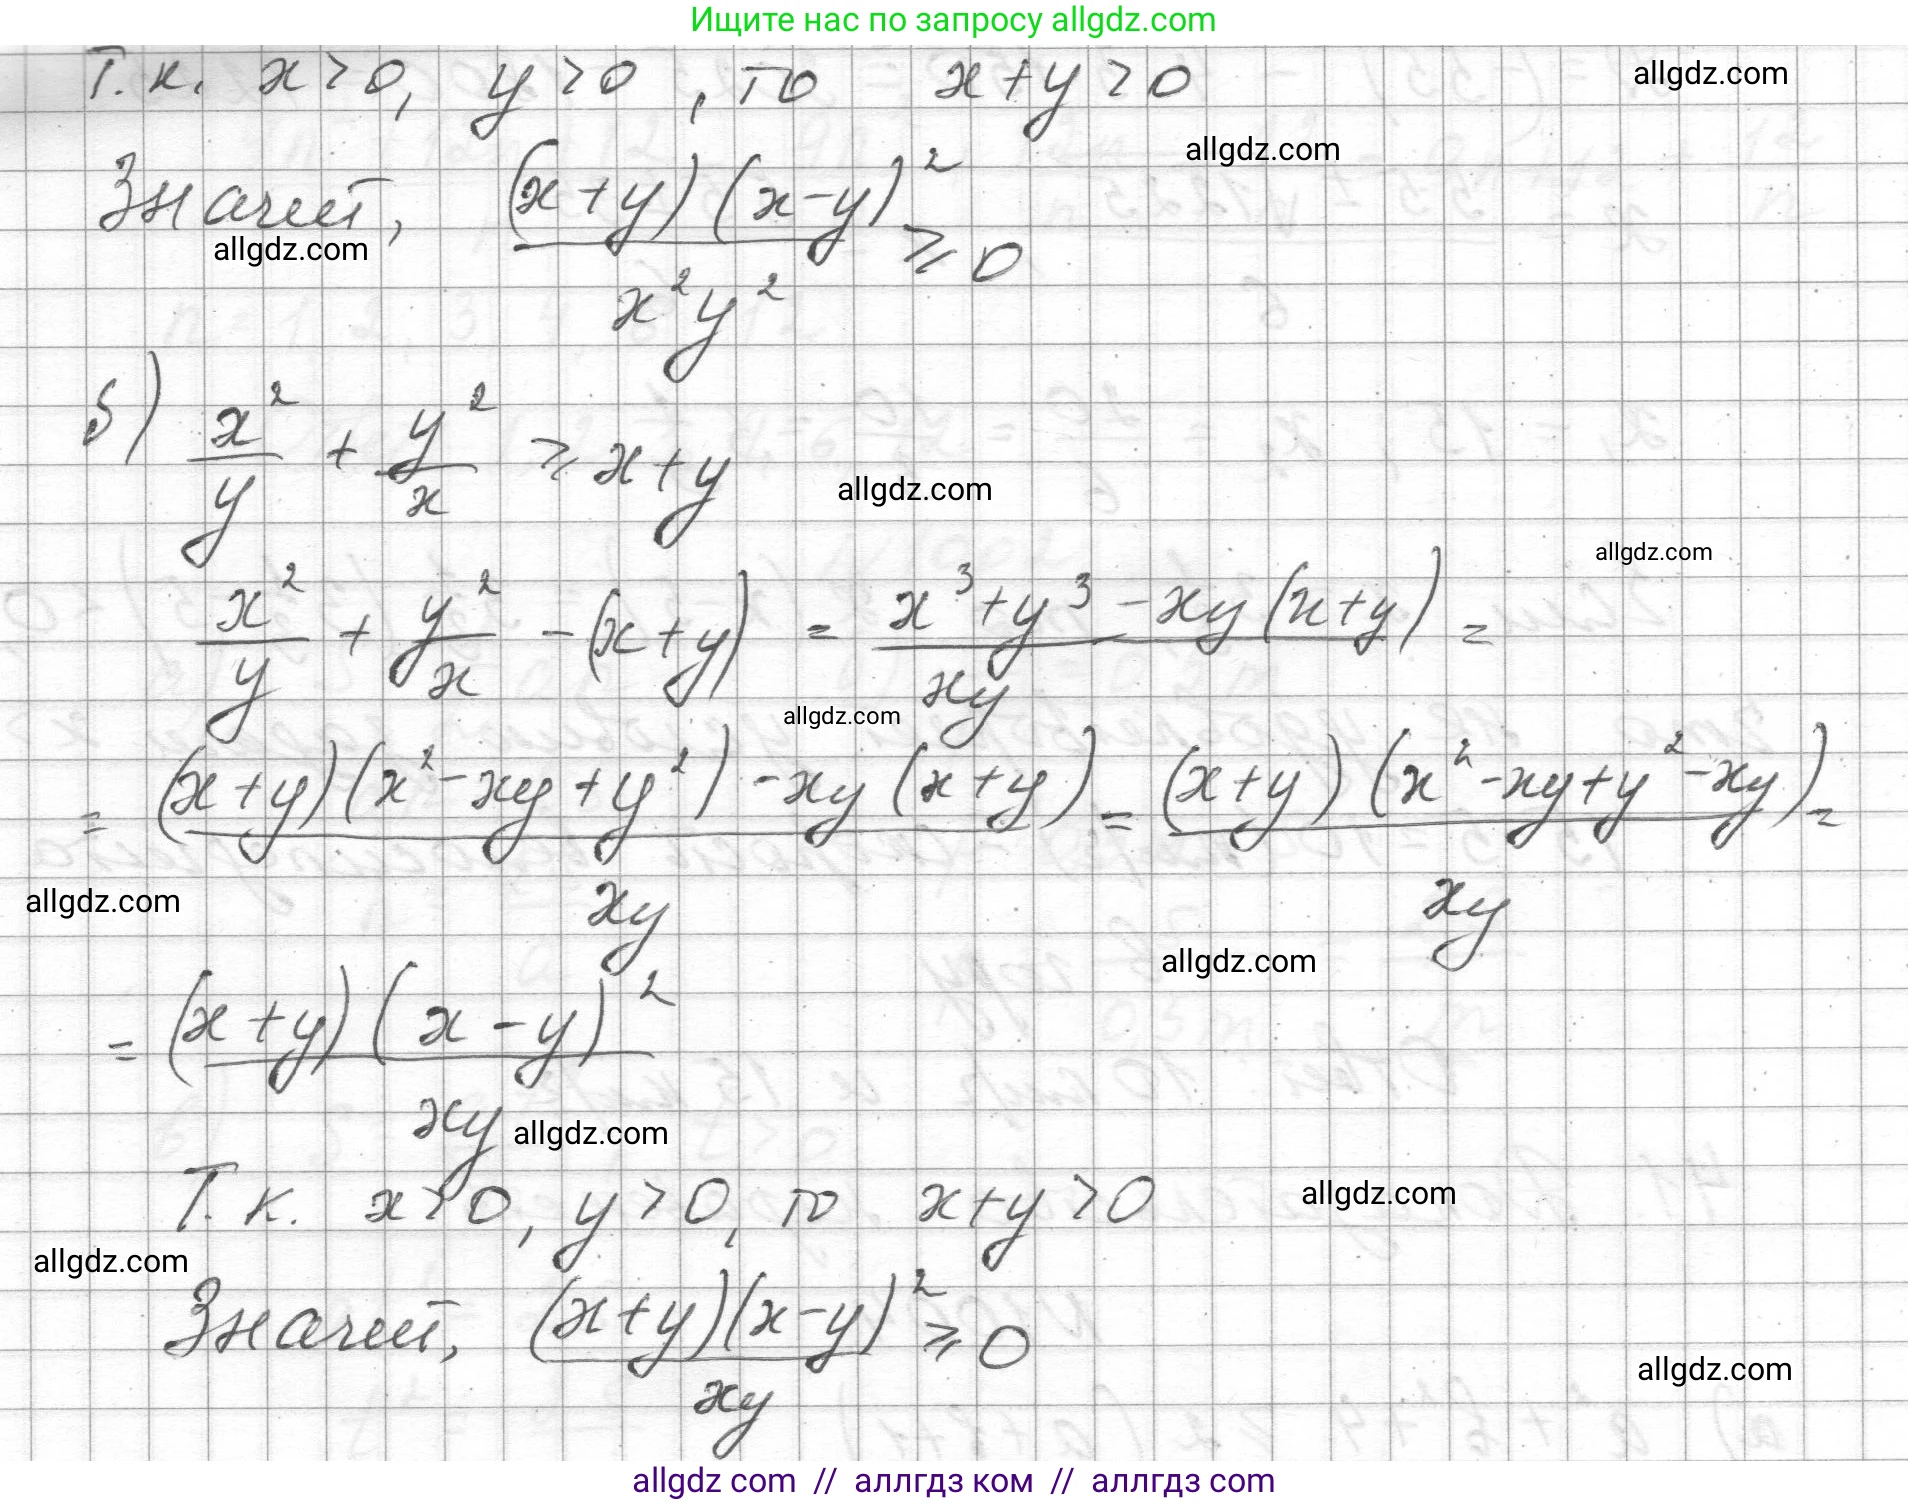 Ищите нас по запросу allgdz.com
Т.к. x>0, y>0, то x+y>0
allgdz.com
allgdz.com
Значит, (x+y)(x-y)² / x²y² ⩾ 0
allgdz.com
б) x²/y + y²/x ⩾ x+y
allgdz.com
allgdz.com
x²/y + y²/x - (x+y) = (x³+y³-xy(x+y)) / xy =
allgdz.com
= ((x+y)(x²-xy+y²)-xy(x+y)) / xy = ((x+y)(x²-xy+y²-xy)) / xy =
allgdz.com
allgdz.com
= (x+y)(x-y)² / xy
allgdz.com
Т.к. x>0, y>0, то x+y>0
allgdz.com
allgdz.com
Значит, (x+y)(x-y)² / xy ⩾ 0
allgdz.com
allgdz com // аллгдз ком // аллгдз com